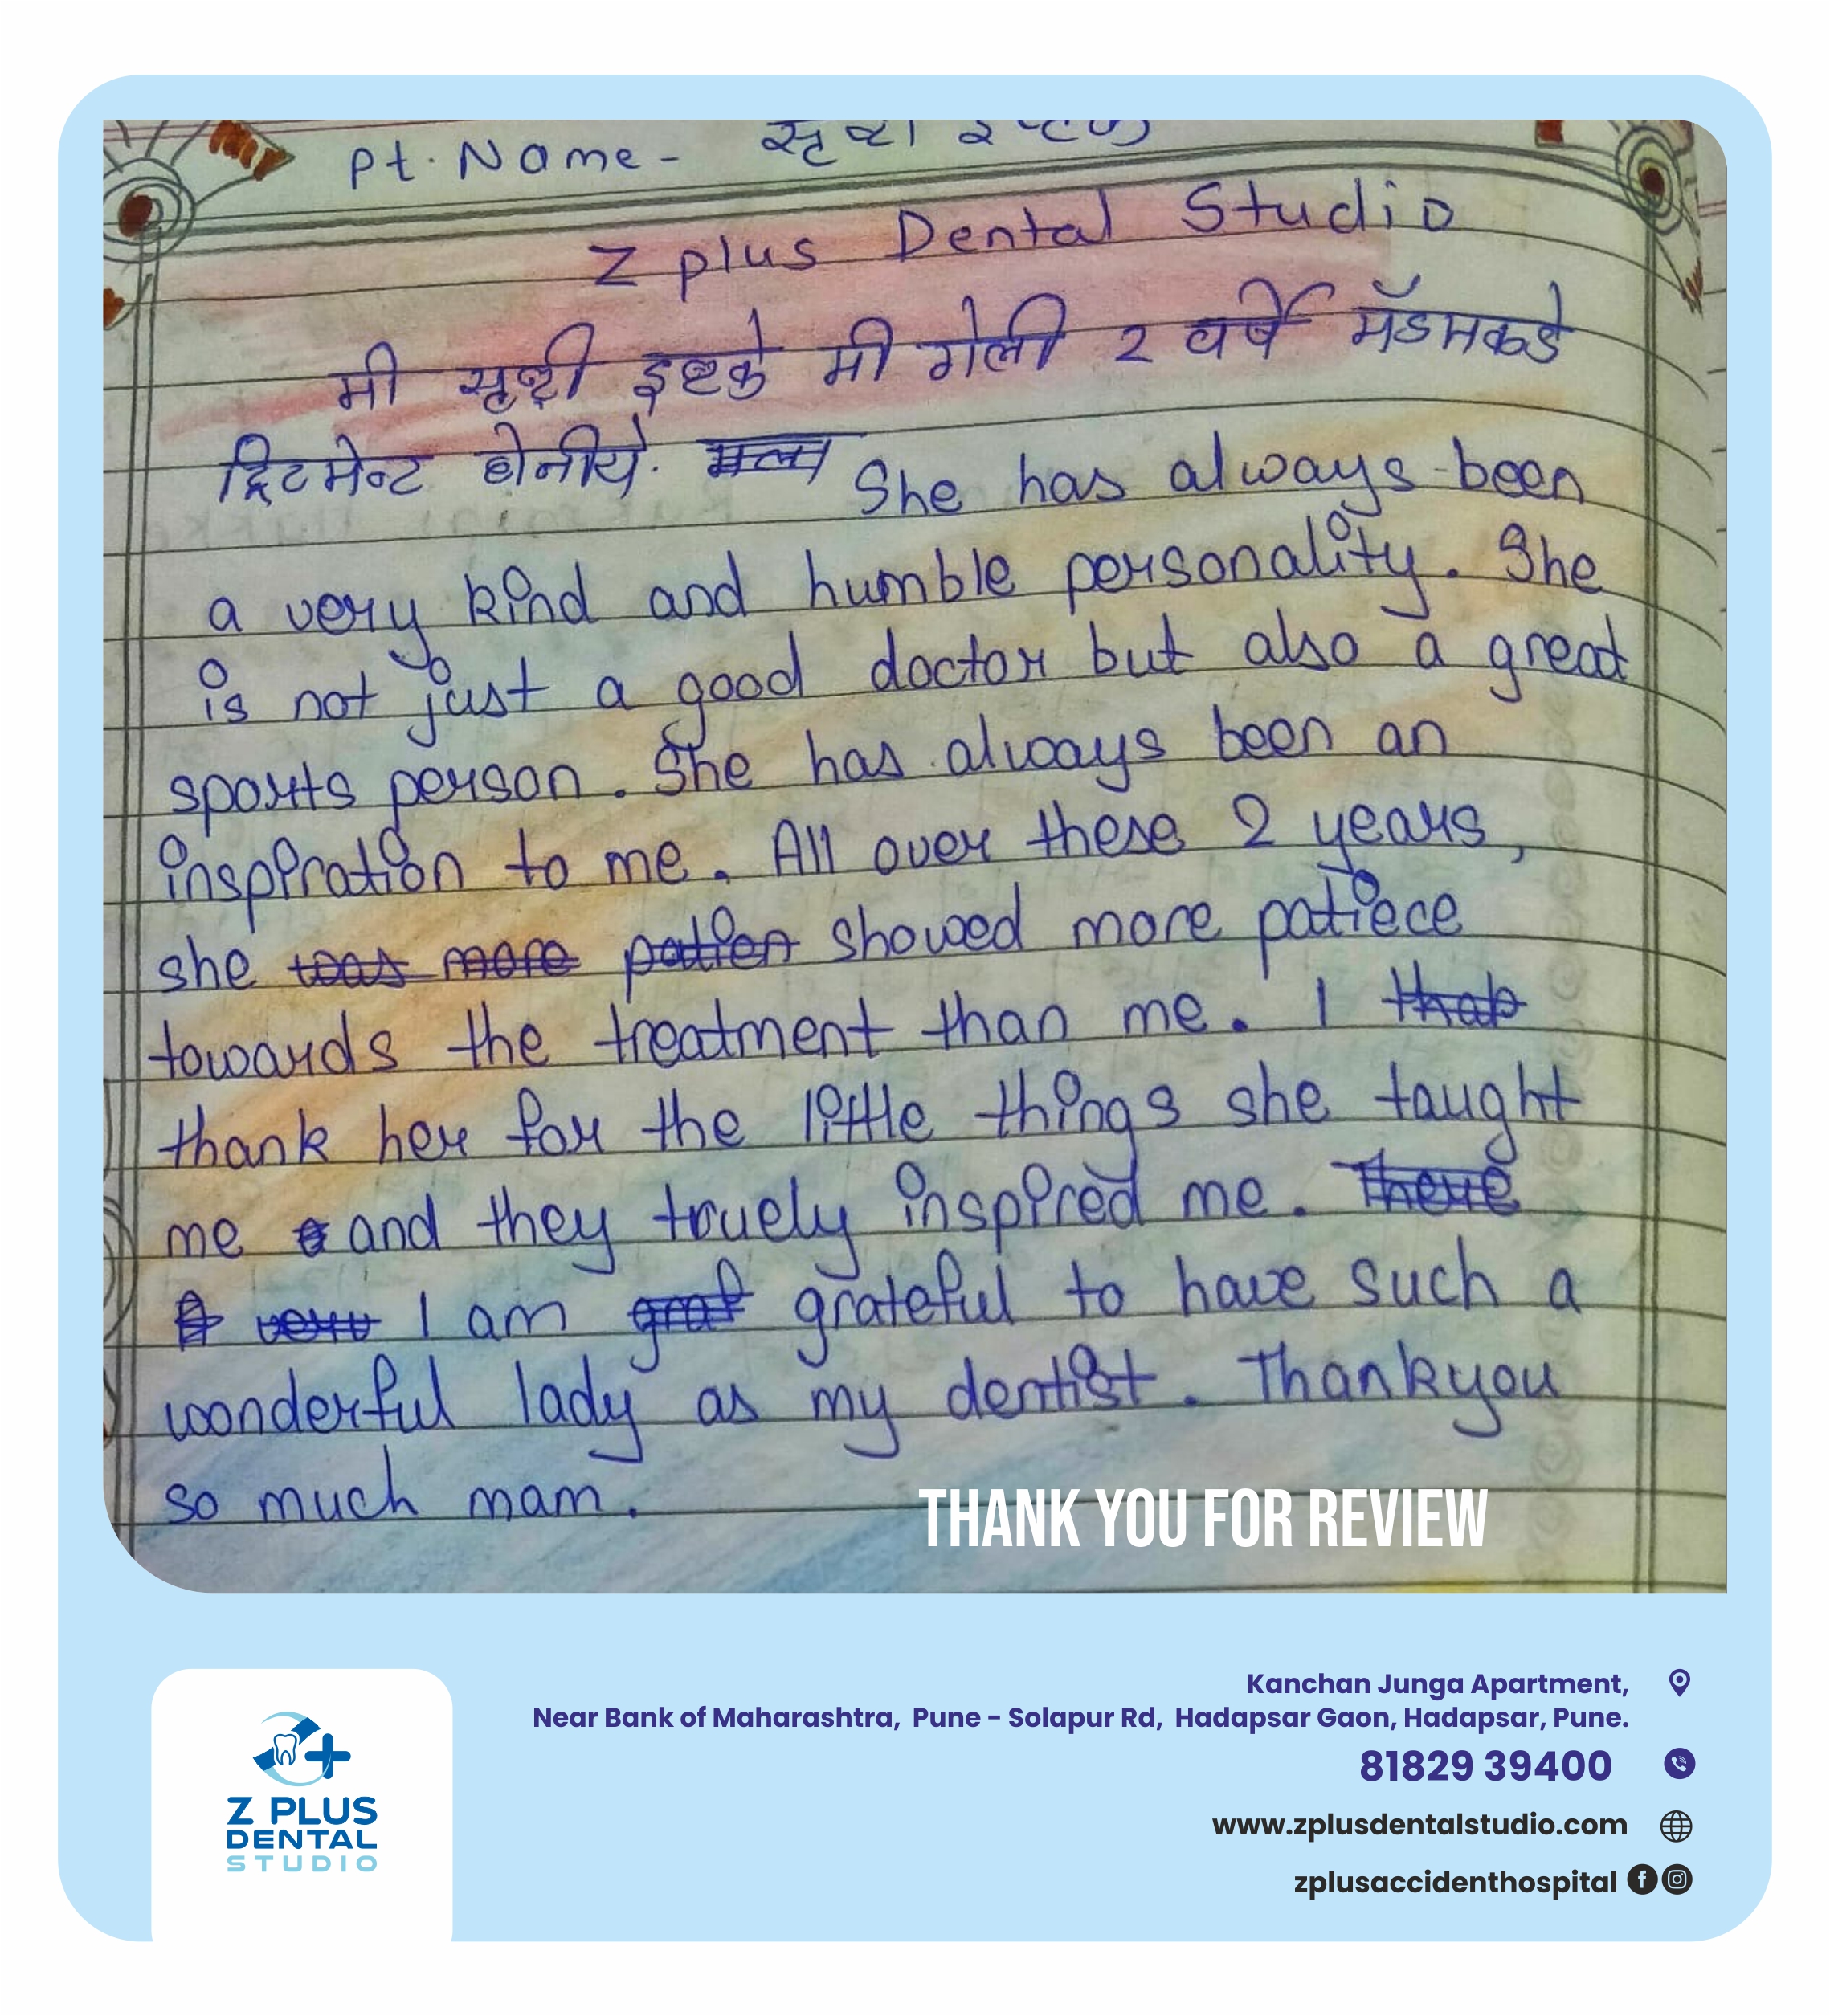 Pt. Name -
Z plus Dental Studio
मी सृष्टी इष्टके मी गेली 2 वर्षे मॅडमकडे
ट्रिटमेन्ट घेतीये. She has always been
a very kind and humble personality. She
is not just a good doctor but also a great
sports person. She has always been an
inspiration to me. All over these 2 years,
she was more patien showed more patiece
towards the treatment than me. I
thank her for the little things she taught
me and they truely inspired me. There
I am graf grateful to have such a
wonderful lady as my dentist. Thankyou
so much mam.
THANK YOU FOR REVIEW
Kanchan Junga Apartment,
Near Bank of Maharashtra, Pune - Solapur Rd, Hadapsar Gaon, Hadapsar, Pune.
81829 39400
www.zplusdentalstudio.com
zplusaccidenthospital
Z PLUS
DENTAL
STUDIO